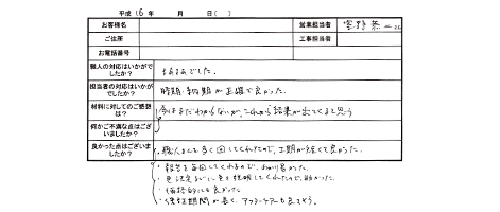 平成16年　月　日（　）
お客様名　営業担当者
ご住所　工事担当者
お電話番号
職人の対応はいかがでしたか？　まあまあでした。
担当者の対応はいかがでしたか？　時間・約束が正確で良かった。
材料に対してのご感想は？　今はまだわからないが、これから結果が出てくると思う
何かご不満な点はございましたか？
良かった点はございましたか？　・職人さんも多く回してくれたので、工期が短くて良かった。
・報告を毎回してくれるので、良かった。
・見積もりしてくれたので、助かった。
・価格的にも良かった
・保証期間が長く、アフターケアーも良さそう。